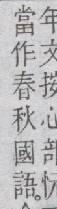 年文按心部
當作春秋國語。